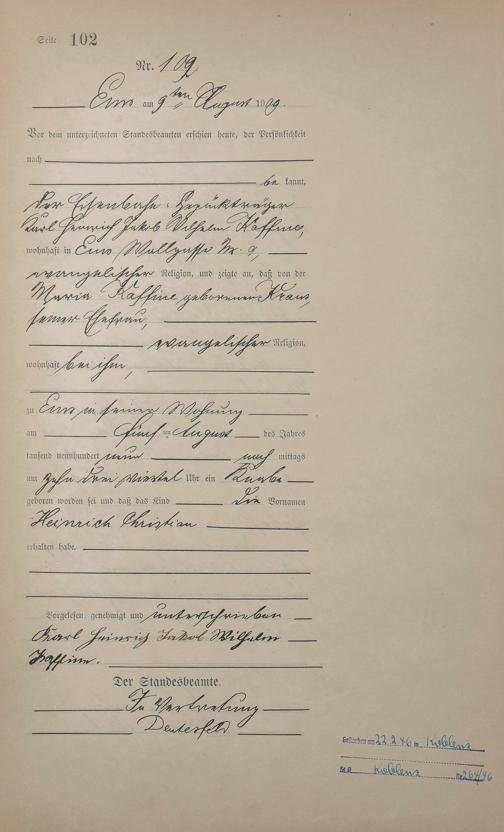 Seite 102
Nr. 109
Ems am 9ten August 1909.
Vor dem unterzeichneten Standesbeamten erschien heute, der Persönlichkeit
nach
be kannt,
der Eisenbahn-Gepäckträger
Karl Heinrich Jakob Wilhelm Kaffine,
wohnhaft in Ems Wallgasse Nr. 9,
evangelischer Religion, und zeigte an, daß von der
Maria Kaffine geborenen Kraus,
seiner Ehefrau,
evangelischer Religion,
wohnhaft bei ihm,
zu Ems in seiner Wohnung
am fünf ten August des Jahres
tausend neunhundert neun nach mittags
um zehn drei viertel Uhr ein Knabe
geboren worden sei und daß das Kind die Vornamen
Heinrich Christian
erhalten habe.
Vorgelesen, genehmigt und unterschrieben
Karl Heinrich Jakob Wilhelm
Kaffine.
Der Standesbeamte.
In Vertretung
Gestorben am 22.2.46 in Koblenz
St.A. Koblenz Nr. 264/46